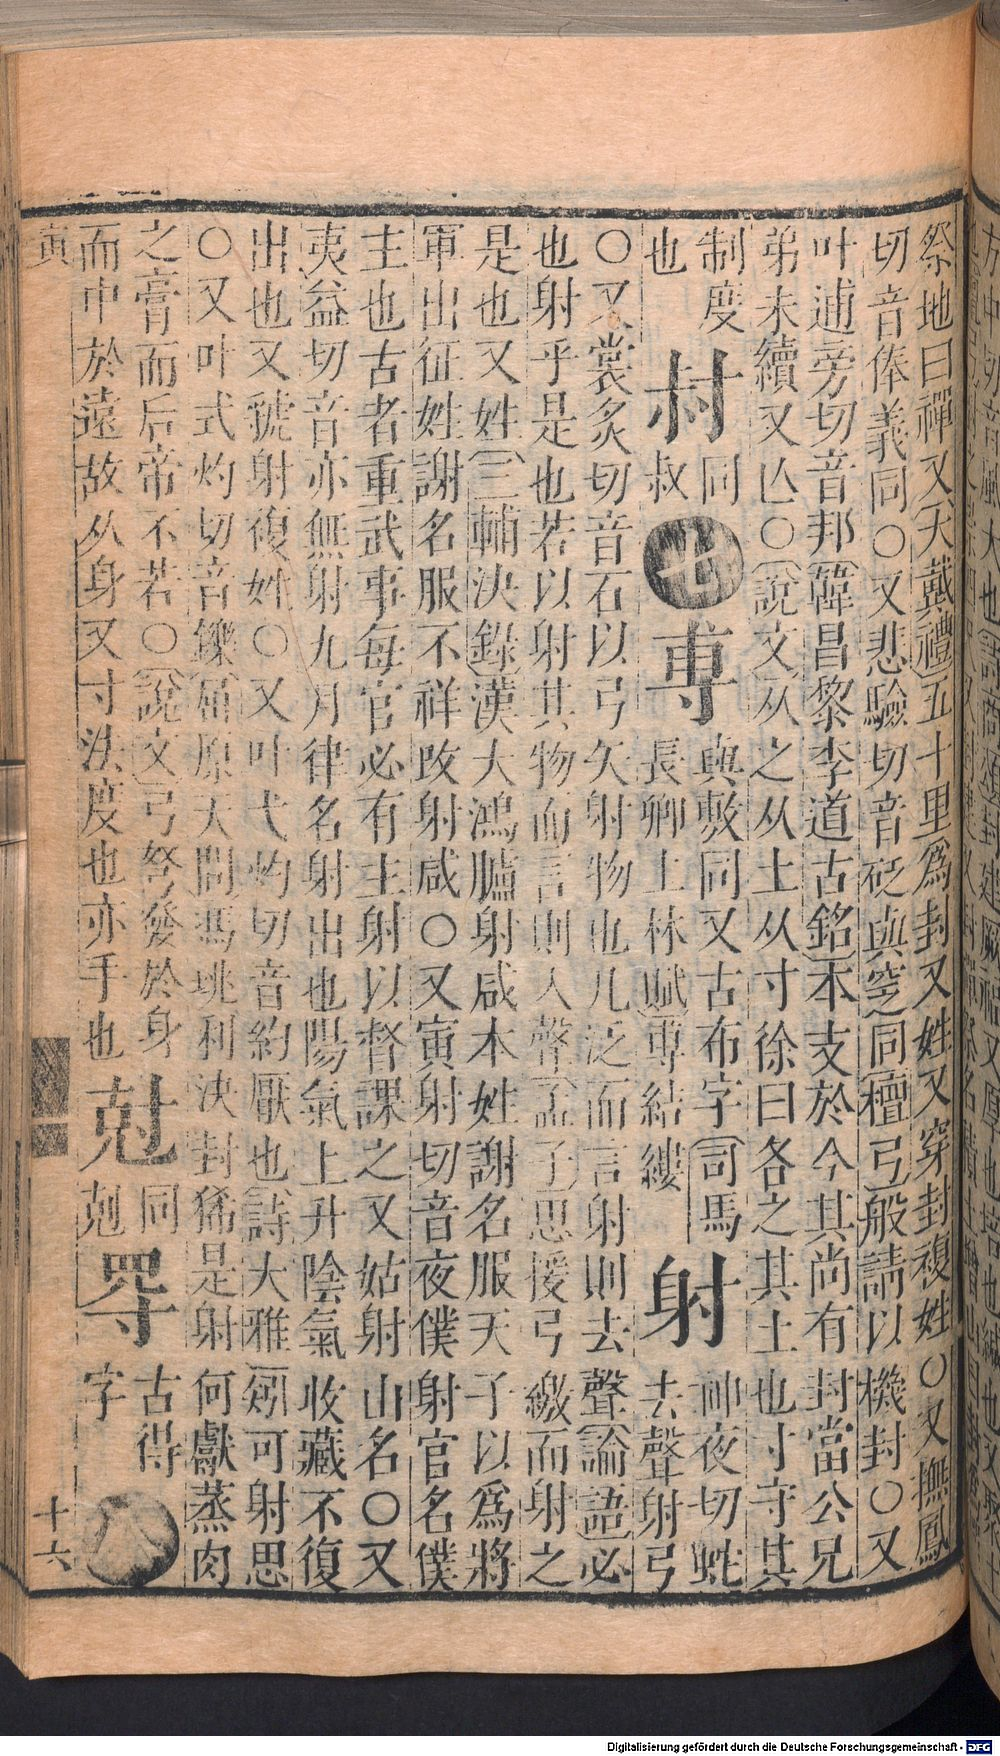 祭地曰禪又〔大戴禮〕五十里爲封又姓又穿封複姓○又撫鳳
切音俸義同○又悲驗切音砭與窆同〔檀弓〕般請以機封○又
叶逋旁切音邦〔韓昌黎李道古銘〕本支於今其尚有封當公兄
弟未續又亾○〔說文〕从之从土从寸徐曰各之其土也寸守其
制度也
尌同叔
七
尃與敷同又古布字〔司馬長卿上林賦〕尃結縷
射神夜切蛇去聲射弓
○又裳炙切音石以弓矢射物也凡泛而言射則去聲〔論語〕必
也射乎是也若以射其物而言則入聲〔孟子〕思援弓繳而射之
是也又姓〔三輔決錄〕漢大鴻臚射咸本姓謝名服天子以爲將
軍出征姓謝名服不祥改射咸○又寅射切音夜僕射官名僕
主也古者重武事每官必有主射以督課之又姑射山名○又
夷益切音亦無射九月律名射出也陽氣上升陰氣收藏不復
出也又虢射複姓○又叶弋灼切音約厭也〔詩大雅〕矧可射思
○又叶式灼切音鑠〔屈原天問〕馮珧利決封狶是射何獻蒸肉
之膏而后帝不若○〔說文〕弓弩發於身
而中於遠故从身又寸法度也亦手也
尅同剋
㝵古得字
八
寅
十六
Digitalisierung gefördert durch die Deutsche Forschungsgemeinschaft - DFG